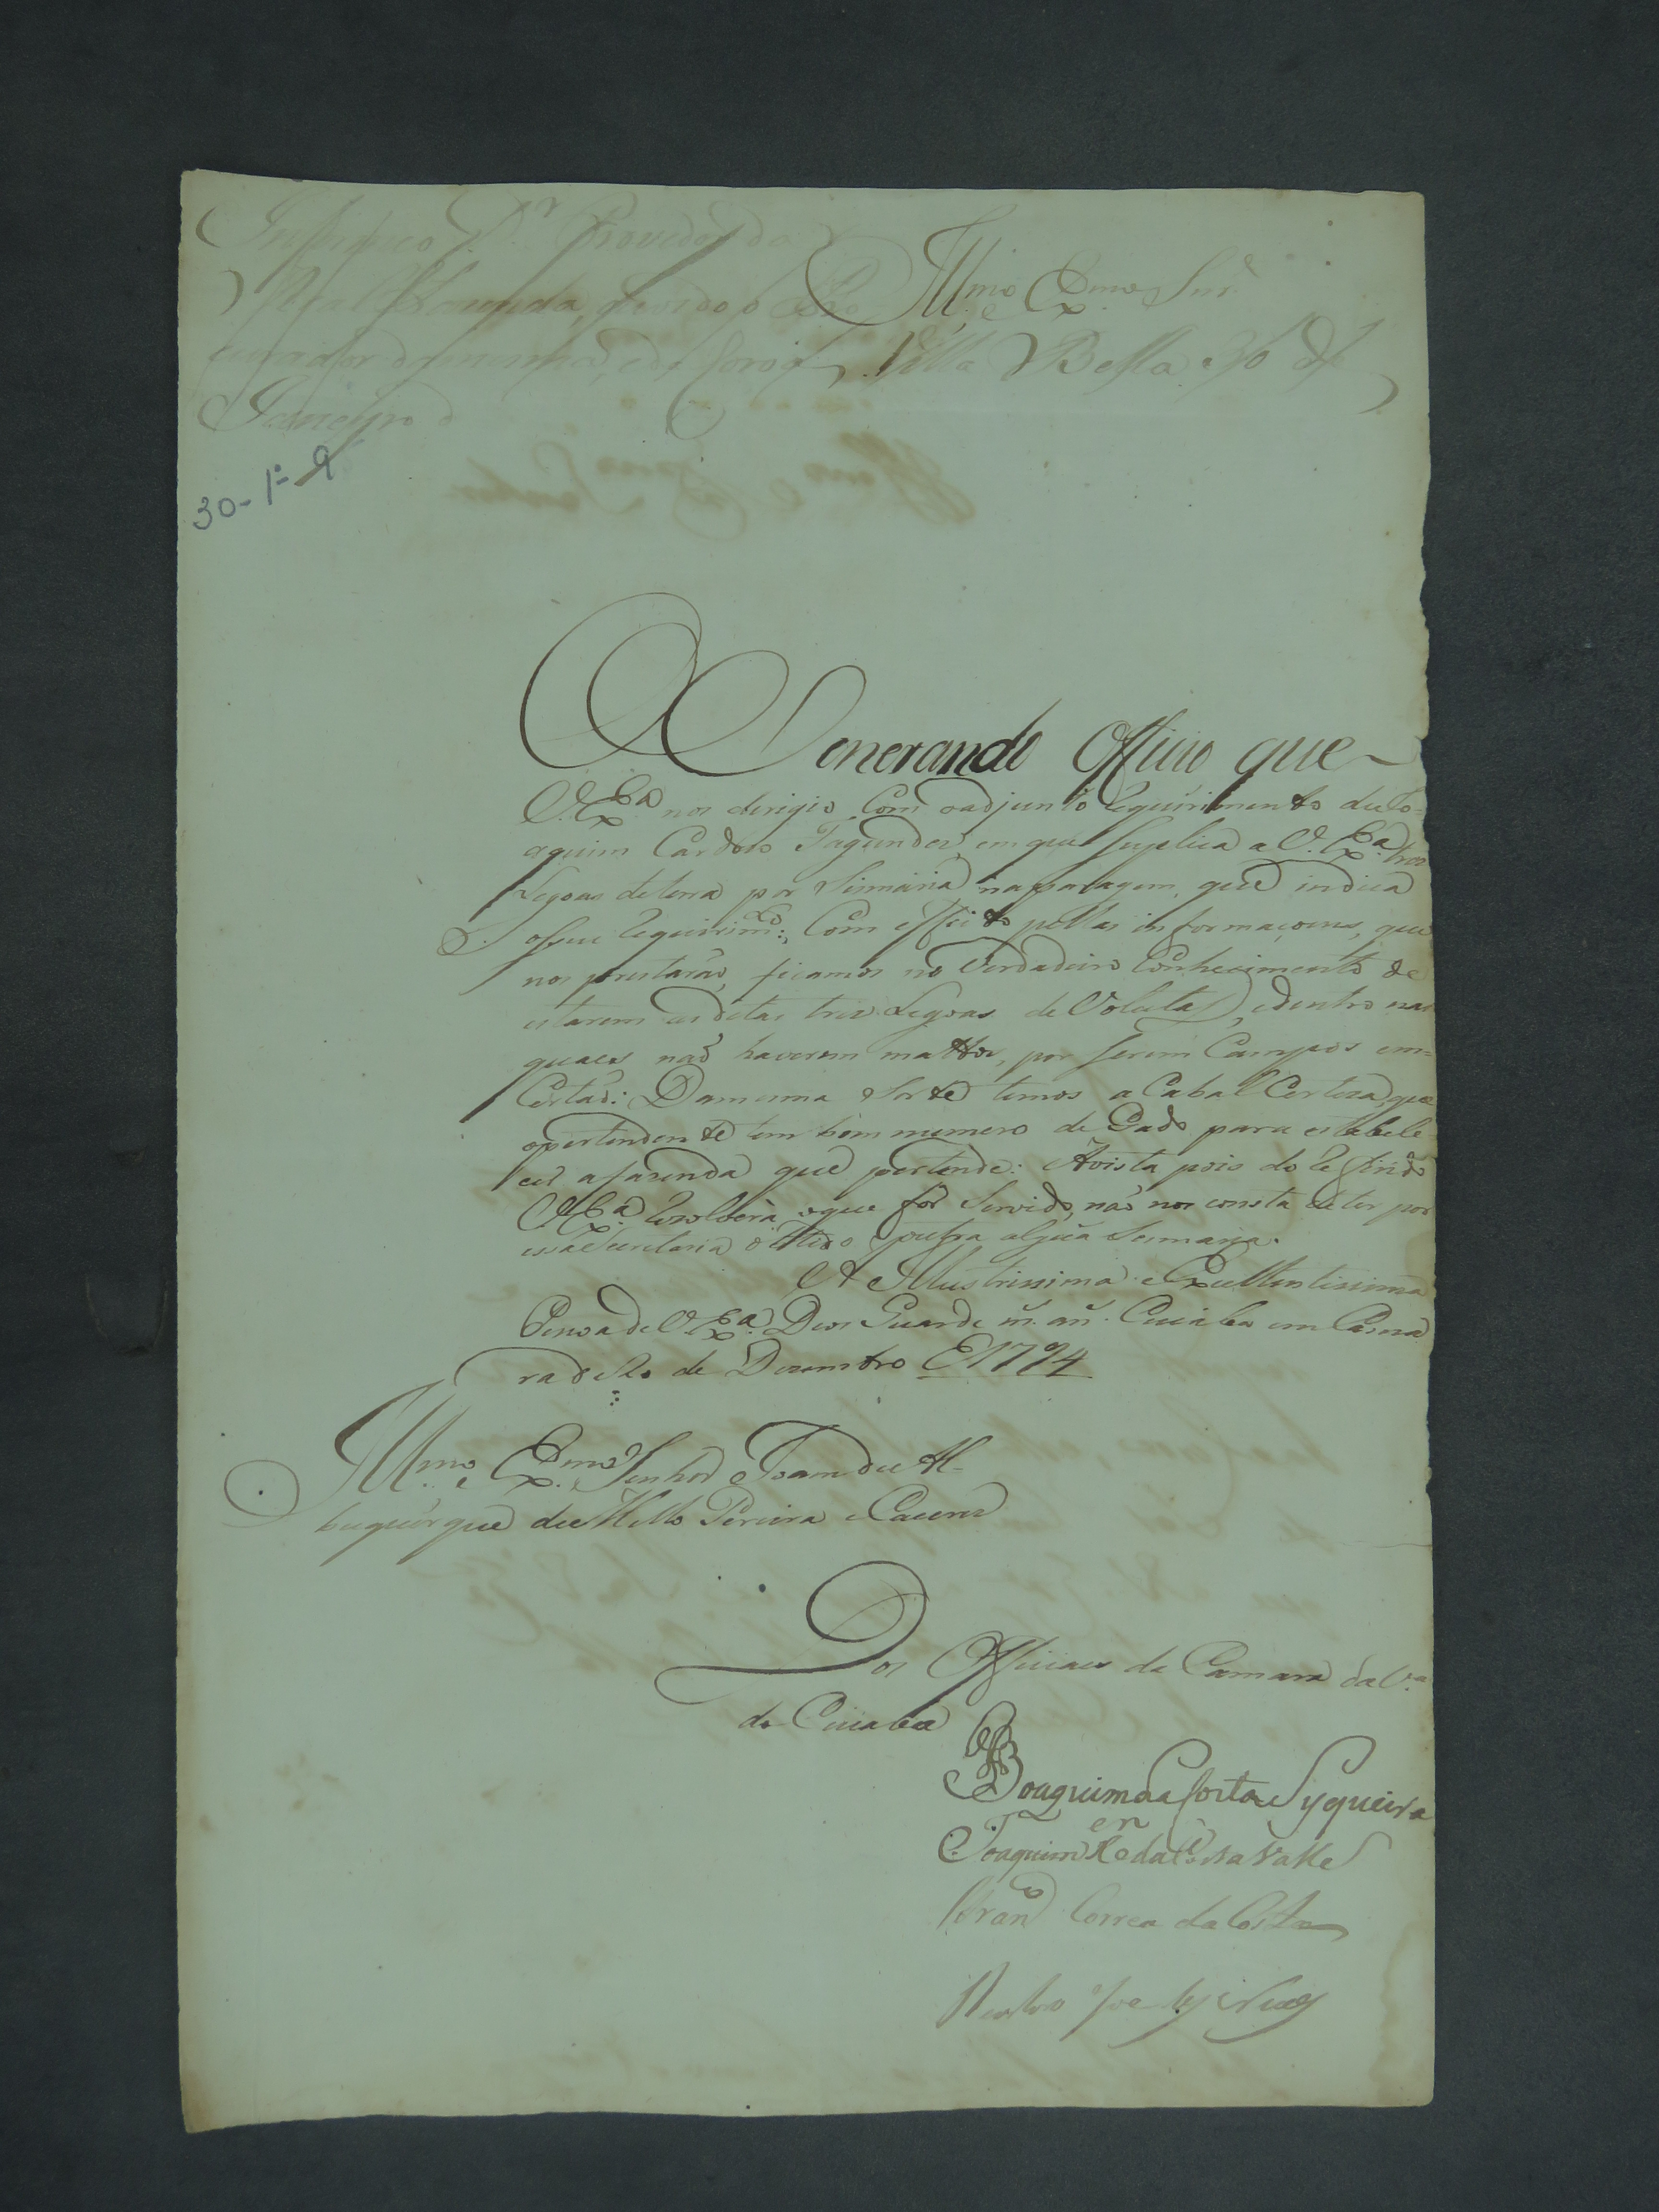 Informe o D.r Provedor da
Real Fazenda, ouvindo o Pro-
curador da mesma, e da Coroa. Villa Bella 30 de
Janeiro d
30-1º-9
Ill.mo e Ex.mo Snr.
O Venerando Officio que
V. Ex.ª nos derigio Com o adjunto requirimento de Jo-
aquim Cardozo Fagundes em que Suplica a V. Ex.ª tres
Legoas de terra por Sismaria na paragem, que indica
o Seu requirim.to: Com effeito pellas informaçoens, que
nos prestarão, ficamos no Verdadeiro Conhecimento de
estarem as ditas tres Legoas de Voluta, e dentro nas
quaes não haverem mattos, por Serem Campos em
Certão: Da mesma Sorte temos a Cabal Certeza, que
o pertendente tem bom numero de Gado para estabele-
cer a fazenda que pertende: Avista pois do referido
V. Ex.ª rezolverá o que for Servido, não nos consta de ter por
essa Secretaria o Mesmo algũa Sesmaria.
A Illustrissima e Excellentissima
Pessoa de V. Ex.ª Deos Guarde m. an. Cuiaba em Cama
ra de 20 de Dezembro de 1794
Ill.mo e Ex.mo Senhor Joam de Al-
buquerque de Mello Pereira e Caceres
Dos Officiaes da Camara da V.ª
do Cuiaba
Joaquim da Costa Syqueira
Joaquim da Costa Valle
Fran.co Correa da Costa